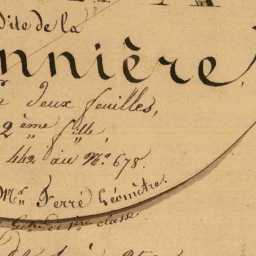 dite de la
nnière
deux feuilles,
2ème f.lle
442 au No. 678.
Mr. Ferré Géomètre.
classe